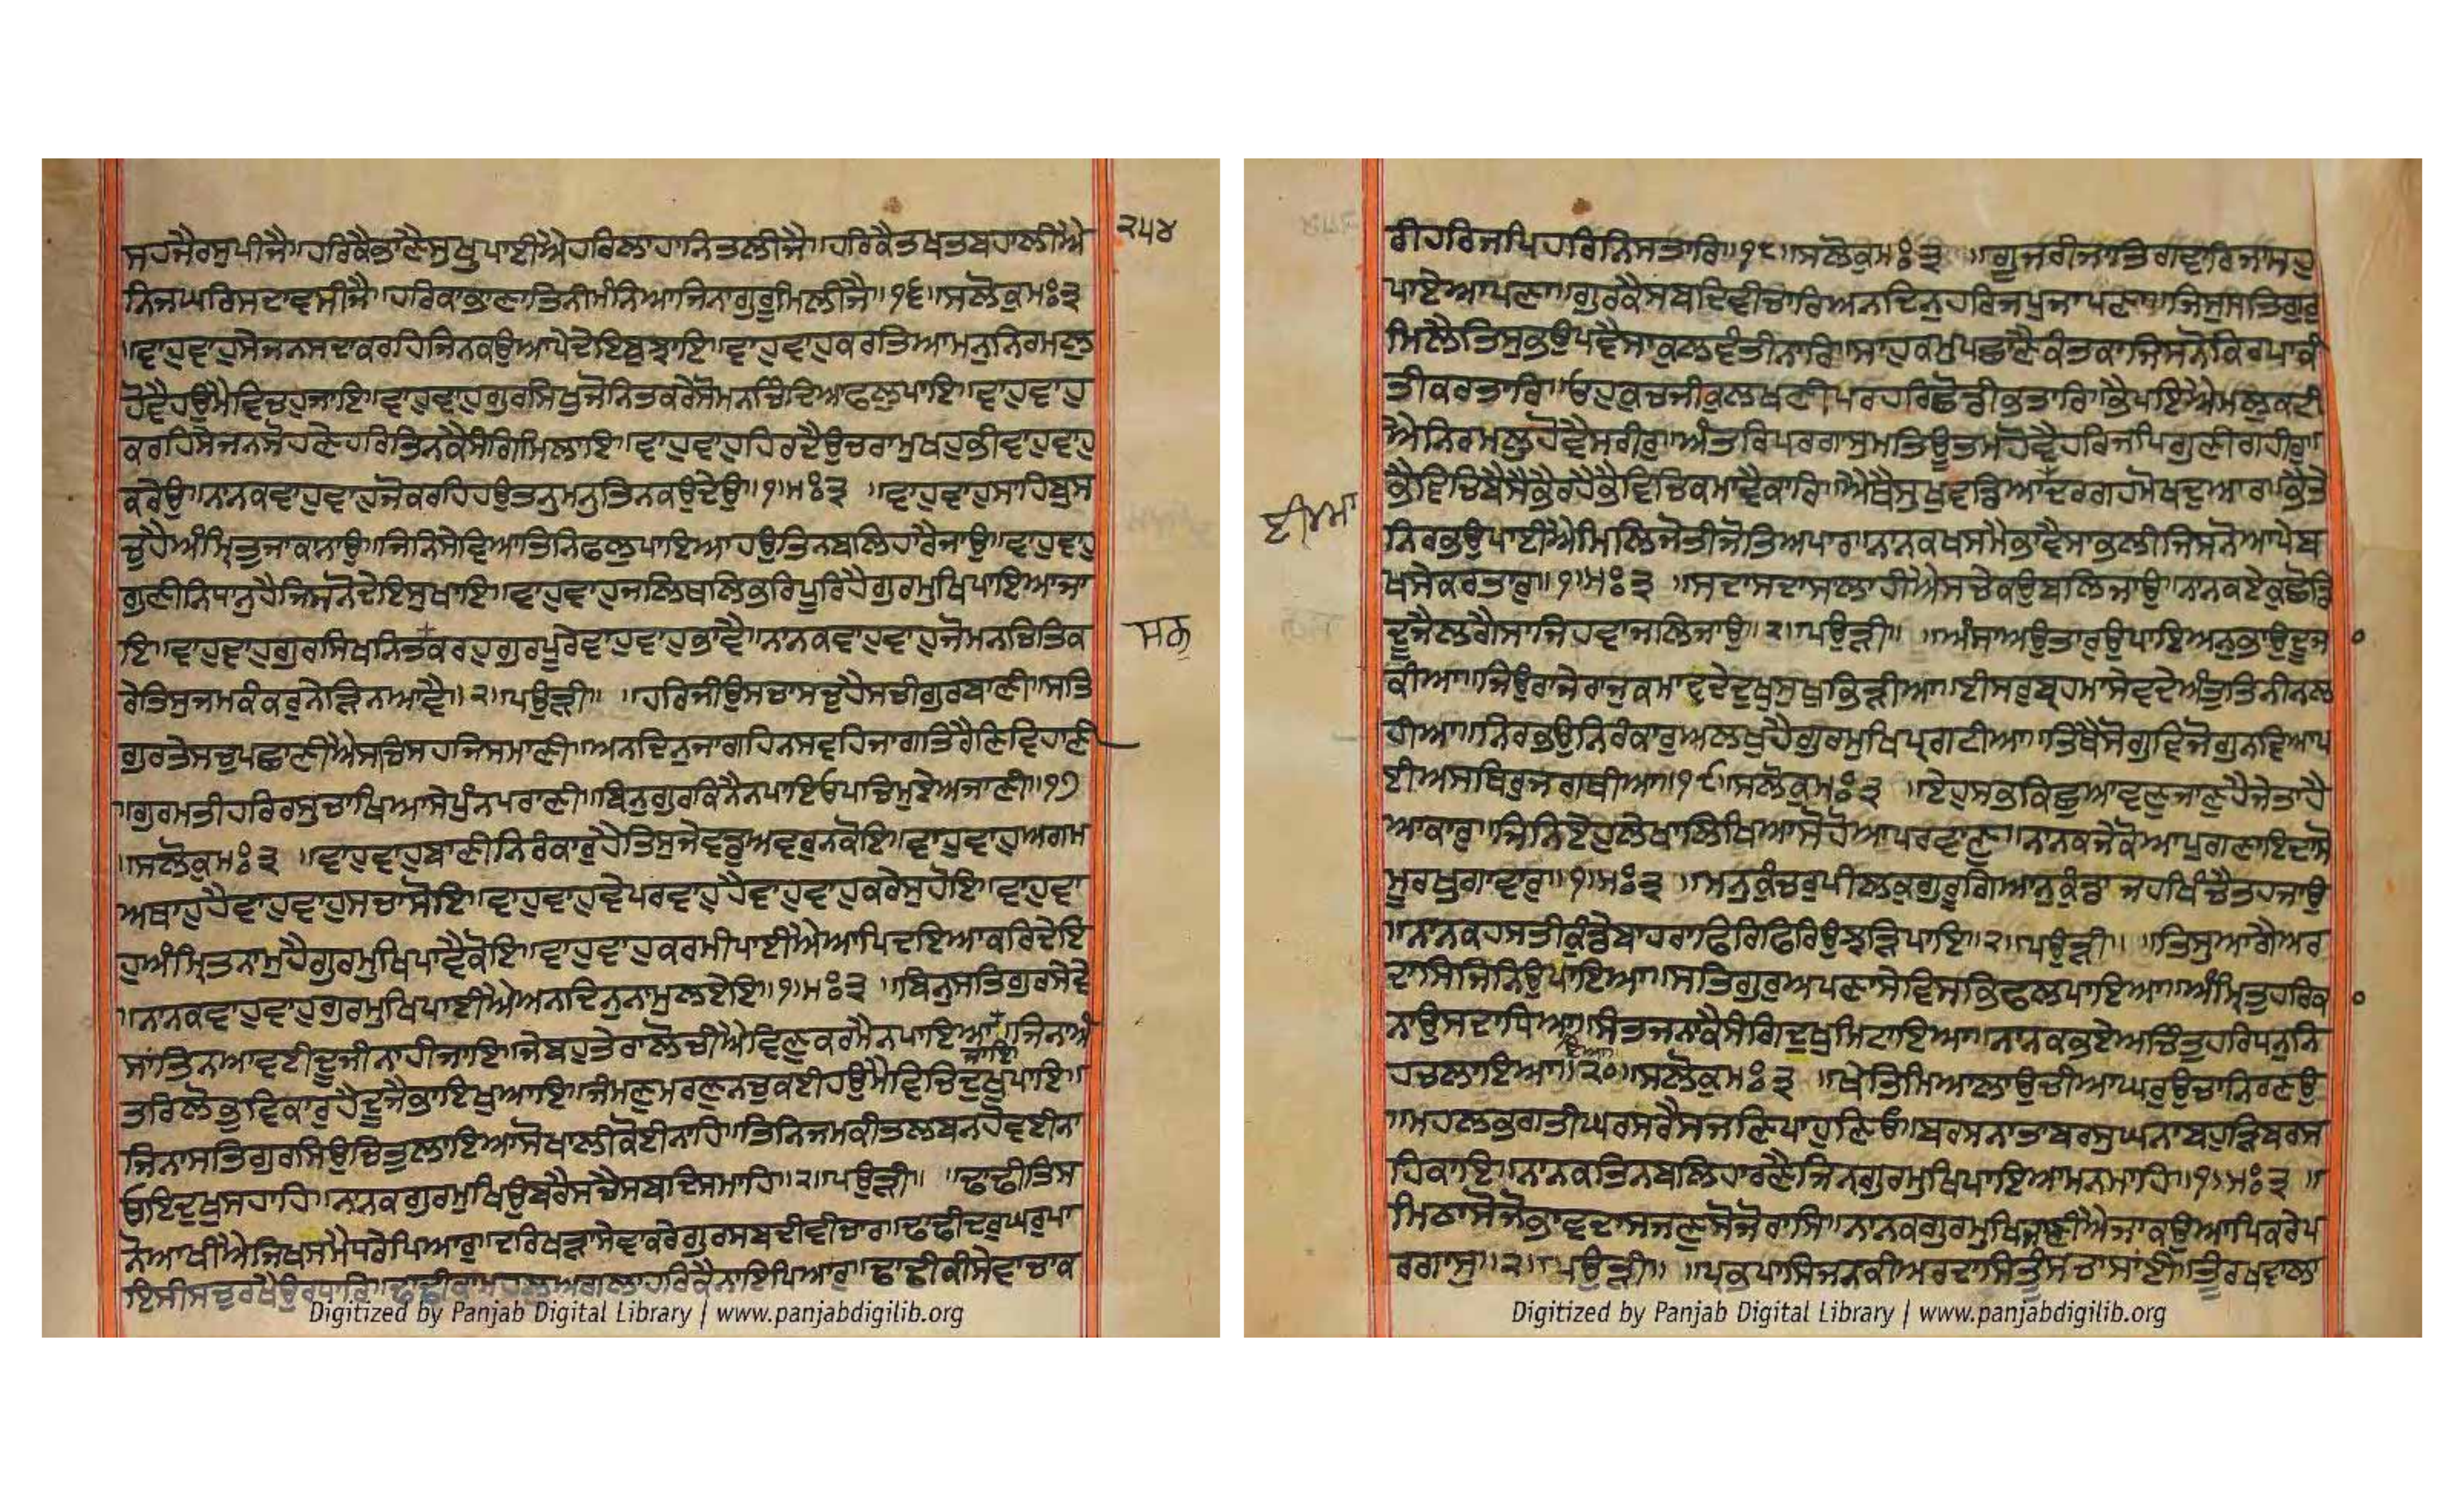 ਸਹਜੈਰਸੁਪੀਜੈ॥ਹਰਿਕੈਭਾਣੈਸੁਖੁਪਾਈਐਹਰਿਲਾਹਾਨਿਤਲੀਜੈ॥ਹਰਿਕੈਤਖਤਬਹਾਲੀਐ
ਨਿਜਘਰਿਸਦਾਵਸੀਜੈ॥ਹਰਿਕਾਭਾਣਾਤਿਨੀਮੰਨਿਆਜਿਨਾਗੁਰੂਮਿਲੀਜੈ॥੧੬॥ਸਲੋਕੁਮਃ੩
॥ਵਾਹੁਵਾਹੁਸੇਜਨਸਦਾਕਰਹਿਜਿਨਕਉਆਪੇਦੇਇਬੁਝਾਇ॥ਵਾਹੁਵਾਹੁਕਰਤਿਆਮਨੁਨਿਰਮਲੁ
ਹੋਵੈਹਉਮੈਵਿਚਹੁਜਾਇ॥ਵਾਹੁਵਾਹੁਗੁਰਸਿਖੁਜੋਨਿਤਕਰੇਸੋਮਨਚਿੰਦਿਆਫਲੁਪਾਇ॥ਵਾਹੁਵਾਹੁ
ਕਰਹਿਸੇਜਨਸੋਹਣੇਹਰਿਤਿਨਕੈਸੰਗਿਮਿਲਾਇ॥ਵਾਹੁਵਾਹੁਹਿਰਦੈਉਚਰਾਮੁਖਹੁਭੀਵਾਹੁਵਾਹੁ
ਕਰੇਉ॥ਨਾਨਕਵਾਹੁਵਾਹੁਜੋਕਰਹਿਹਉਤਨੁਮਨੁਤਿਨਕਉਦੇਉ॥੧॥ਮਃ੩ ॥ਵਾਹੁਵਾਹੁਸਾਹਿਬੁਸ
ਚੁਹੈਅੰਮ੍ਰਿਤੁਜਾਕਾਨਾਉ॥ਜਿਨਿਸੇਵਿਆਤਿਨਿਫਲੁਪਾਇਆਹਉਤਿਨਬਲਿਹਾਰੈਜਾਉ॥ਵਾਹੁਵਾਹੁ
ਗੁਣੀਨਿਧਾਨੁਹੈਜਿਸਨੋਦੇਇਸੁਖਾਇ॥ਵਾਹੁਵਾਹੁਜਲਿਥਲਿਭਰਿਪੂਰਿਹੈਗੁਰਮੁਖਿਪਾਇਆਜਾ
ਇ॥ਵਾਹੁਵਾਹੁਗੁਰਸਿਖਨਿਤਕਰਹੁਗੁਰਪੂਰੇਵਾਹੁਵਾਹੁਭਾਵੈ॥ਨਾਨਕਵਾਹੁਵਾਹੁਜੋਮਨਚਿਤਿਕ
ਰੇਤਿਸੁਜਮਕੰਕਰੁਨੇੜਿਨਆਵੈ॥੨॥ਪਉੜੀ॥ ॥ਹਰਿਜੀਉਸਚਾਸਚੁਹੈਸਚੀਗੁਰਬਾਣੀ॥ਸਤਿ
ਗੁਰਤੇਸਚੁਪਛਾਣੀਐਸਚਿਸਹਜਿਸਮਾਣੀ॥ਅਨਦਿਨੁਜਾਗਹਿਨਸਵਹਿਜਾਗਤਿਰੈਣਿਵਿਹਾਣੀ
॥ਗੁਰਮਤੀਹਰਿਰਸੁਚਾਖਿਆਸੇਪੁੰਨਪਰਾਣੀ॥ਬਿਨੁਗੁਰਕਿਨੈਨਪਾਇਓਪਚਿਮੁਏਅਜਾਣੀ॥੧੭
॥ਸਲੋਕੁਮਃ੩ ॥ਵਾਹੁਵਾਹੁਬਾਣੀਨਿਰੰਕਾਰੁਹੈਤਿਸੁਜੇਵਡੁਅਵਰੁਨਕੋਇ॥ਵਾਹੁਵਾਹੁਅਗਮ
ਅਥਾਹੁਹੈਵਾਹੁਵਾਹੁਸਚਾਸੋਇ॥ਵਾਹੁਵਾਹੁਵੇਪਰਵਾਹੁਹੈਵਾਹੁਵਾਹੁਕਰੇਸੁਹੋਇ॥ਵਾਹੁਵਾ
ਹੁਅੰਮ੍ਰਿਤਨਾਮੁਹੈਗੁਰਮੁਖਿਪਾਵੈਕੋਇ॥ਵਾਹੁਵਾਹੁਕਰਮੀਪਾਈਐਆਪਿਦਇਆਕਰਿਦੇਇ
॥ਨਾਨਕਵਾਹੁਵਾਹੁਗੁਰਮੁਖਿਪਾਈਐਅਨਦਿਨੁਨਾਮੁਲਏਇ॥੧॥ਮਃ੩ ॥ਬਿਨੁਸਤਿਗੁਰਸੇਵੇ
ਸਾਂਤਿਨਆਵਈਦੂਜੀਨਾਹੀਜਾਇ॥ਜੇਬਹੁਤੇਰਾਲੋਚੀਐਵਿਣੁਕਰਮੈਨਪਾਇਆ ਜਾਇ॥ਜਿਨਾਅੰ
ਤਰਿਲੋਭੁਵਿਕਾਰੁਹੈਦੂਜੈਭਾਇਖੁਆਇ॥ਜੰਮਣੁਮਰਣੁਨਚੁਕਈਹਉਮੈਵਿਚਿਦੁਖੁਪਾਇ॥
ਜਿਨਾਸਤਿਗੁਰਸਿਉਚਿਤੁਲਾਇਆਸੋਖਾਲੀਕੋਈਨਾਹਿ॥ਤਿਨਿਜਮਕੀਤਲਬਨਹੋਵਈਨਾ
ਓਇਦੁਖੁਸਹਾਹਿ॥ਨਾਨਕਗੁਰਮੁਖਿਉਬਰੈਸਚੈਸਬਦਿਸਮਾਹਿ॥੨॥ਪਉੜੀ॥ ॥ਢਾਢੀਤਿਸ
ਨੋਆਖੀਐਜਿਖਸਮੈਧਰੇਪਿਆਰੁ॥ਦਰਿਖੜਾਸੇਵਾਕਰੇਗੁਰਸਬਦੀਵੀਚਾਰਾ॥ਢਾਢੀਦਰੁਘਰੁਪਾ
ਇਸੀਸਚੁਰਖੈਉਰਧਾਰਿ॥ਢਾਢੀਕਾਮਹਲੁਅਗਲਾਹਰਿਕੈਨਾਇਪਿਆਰੁ॥ਢਾਢੀਕੀਸੇਵਾਚਾਕ
੨੫੪
Digitized by Panjab Digital Library | www.panjabdigilib.org
ਰੀਹਰਿਜਪਿਹਰਿਨਿਸਤਾਰਿ॥੧੮॥ਸਲੋਕੁਮਃ੩ ॥ਗੂਜਰੀਜਾਤਿਗਵਾਰਿਜਾਸਹੁ
ਪਾਏਆਪਣਾ॥ਗੁਰਕੈਸਬਦਿਵੀਚਾਰਿਅਨਦਿਨੁਹਰਿਜਪੁਜਾਪਣਾ॥ਜਿਸੁਸਤਿਗੁਰੁ
ਮਿਲੈਤਿਸੁਭਉਪਵੈਸਾਕੁਲਵੰਤੀਨਾਰਿ॥ਸਾਹੁਕਮੁਪਛਾਣੈਕੰਤਕਾਜਿਸਨੋਕਿਰਪਾਕੀ
ਤੀਕਰਤਾਰਿ॥ਓਹਕੁਚਜੀਕੁਲਖਣੀਪਰਹਰਿਛੋਡੀਭਤਾਰਿ॥ਭੈਪਇਐਮਲੁਕਟੀ
ਐਨਿਰਮਲੁਹੋਵੈਸਰੀਰੁ॥ਅੰਤਰਿਪਰਗਾਸੁਮਤਿਊਤਮਹੋਵੈਹਰਿਜਪਿਗੁਣੀਗਹੀਰੁ॥
ਭੈਵਿਚਿਬੈਸੈਭੈਰਹੈਭੈਵਿਚਿਕਮਾਵੈਕਾਰਿ॥ਐਥੈਸੁਖੁਵਡਿਆਦਰਗਹਮੋਖਦੁਆਰਾ॥ਭੈਤੇ
ਨਿਰਭਉਪਾਈਐਮਿਲਿਜੋਤੀਜੋਤਿਅਪਾਰਾ॥ਨਾਨਕਖਸਮੈਭਾਵੈਸਾਭਲੀਜਿਸਨੋਆਪੇਬ
ਖਸੇਕਰਤਾਰੁ॥੧॥ਮਃ੩ ॥ਸਦਾਸਦਾਸਾਲਾਹੀਐਸਚੇਕਉਬਲਿਜਾਉ॥ਨਾਨਕਏਕੁਛੋਡਿ
ਦੂਜੈਲਗੈਸਾਜਿਹਵਾਜਲਿਜਾਉ॥੨॥ਪਉੜੀ॥ ॥ਅੰਸਾਅਉਤਾਰੁਉਪਾਇਅਨੁਭਾਉਦੂਜ
ਕੀਆ॥ਜਿਉਰਾਜੇਰਾਜੁਕਮਾਵਦੇਦੁਖਸੁਖਭਿੜੀਆ॥ਈਸਰੁਬ੍ਰਹਮਾਸੇਵਦੇਅੰਤੁਤਿਨੀਨਲ
ਹੀਆ॥ਨਿਰਭਉਨਿਰੰਕਾਰੁਅਲਖੁਹੈਗੁਰਮੁਖਿਪ੍ਰਗਟੀਆ॥ਤਿਥੈਸੋਗੁਵਿਜੋਗੁਨਵਿਆਪ
ਈਅਸਥਿਰੁਜਗਥੀਆ॥੧੯॥ਸਲੋਕੁਮਃ੩ ॥ਏਹੁਸਭੁਕਿਛੁਆਵਣੁਜਾਣੁਹੈਜੇਤਾਹੈ
ਆਕਾਰੁ॥ਜਿਨਿਏਹੁਲੇਖਾਲਿਖਿਆਸੋਹੋਆਪਰਵਾਣੁ॥ਨਾਨਕਜੇਕੋਆਪੁਗਣਾਇਦਾਸੋ
ਮੂਰਖੁਗਾਵਾਰੁ॥੧॥ਮਃ੩ ॥ਮਨੁਕੁੰਚਰੁਪੀਲਕੁਗੁਰੂਗਿਆਨੁਕੁੰਡਾਜਹਖਿੰਚੈਤਹਜਾਉ
॥ਨਾਨਕਹਸਤੀਕੁੰਡੇਬਾਹਰਾਫਿਰਿਫਿਰਿਉਝੜਿਪਾਇ॥੨॥ਪਉੜੀ॥ ॥ਤਿਸੁਆਗੈਅਰ
ਦਾਸਿਜਿਨਿਉਪਾਇਆ॥ਸਤਿਗੁਰੁਅਪਣਾਸੇਵਿਸਭਿਫਲਪਾਇਆ॥ਅੰਮ੍ਰਿਤੁਹਰਿਕਾ
ਨਾਉਸਦਾਧਿਆਇਆ॥ਸੰਤਜਨਾਕੈਸੰਗਿਦੁਖੁਮਿਟਾਇਆ॥ਨਾਨਕਭਏਅਚਿੰਤੁਹਰਿਧਨੁਨਿ
ਹਚਲਾਇਆ॥੨੦॥ਸਲੋਕੁਮਃ੩ ॥ਖੇਤਿਮਿਆਲਾਉਚੀਆਘਰੁਉਚਾਨਿਰਣਉ
॥ਮਹਲਭਗਤੀਘਰਸਰੈਸਜਣਿਪਾਹੁਣਿਓ॥ਬਰਸਨਾਤਾਬਰਸੁਘਨਾਬਹੁੜਿਬਰਸ
ਹਿਕਾਇ॥ਨਾਨਕਤਿਨਬਲਿਹਾਰਣੈਜਿਨਗੁਰਮੁਖਿਪਾਇਆਮਨਮਾਹਿ॥੧॥ਮਃ੩ ॥
ਮਿਠਾਸੋਜੋਭਾਵਦਾਸਜਣੁਸੋਜੋਰਾਸਿ॥ਨਾਨਕਗੁਰਮੁਖਿਜਾਣੀਐਜਾਕਉਆਪਿਕਰੇਪ
ਰਗਾਸੁ॥੨॥ਪਉੜੀ॥ ॥ਪ੍ਰਭਪਾਸਿਜਨਕੀਅਰਦਾਸਿਤੂੰਸਚਾਸਾਂਈ॥ਤੂੰਰਖਵਾਲਾ
ਈ੪ਮਾ
Digitized by Panjab Digital Library | www.panjabdigilib.org